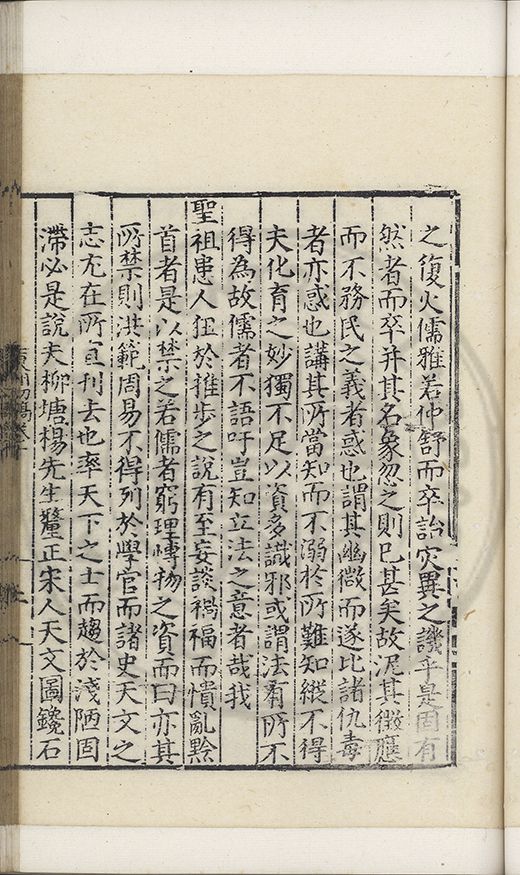 之復火儒雅若仲舒而卒詒灾異之譏乎是固有
然者而卒并其名象忽之則已甚矣故泥其徴應
而不務民之義者惑也謂其幽微而遂比諸仇毒
者亦惑也講其所當知而不溺於所難知縱不得
夫化育之妙獨不足以資多識邪或謂法有所不
得為故儒者不語吁豈知立法之意者哉我
聖祖患人狃於推步之説有至妄談禍福而憒亂黔
首者是以禁之若儒者窮理愽物之資而曰亦其
所禁則洪範周易不得列於學官而諸史天文之
志尤在所宜刊去也率天下之士而趨於淺陋固
滯必是説夫柳塘楊先生釐正宋人天文圖鑱石